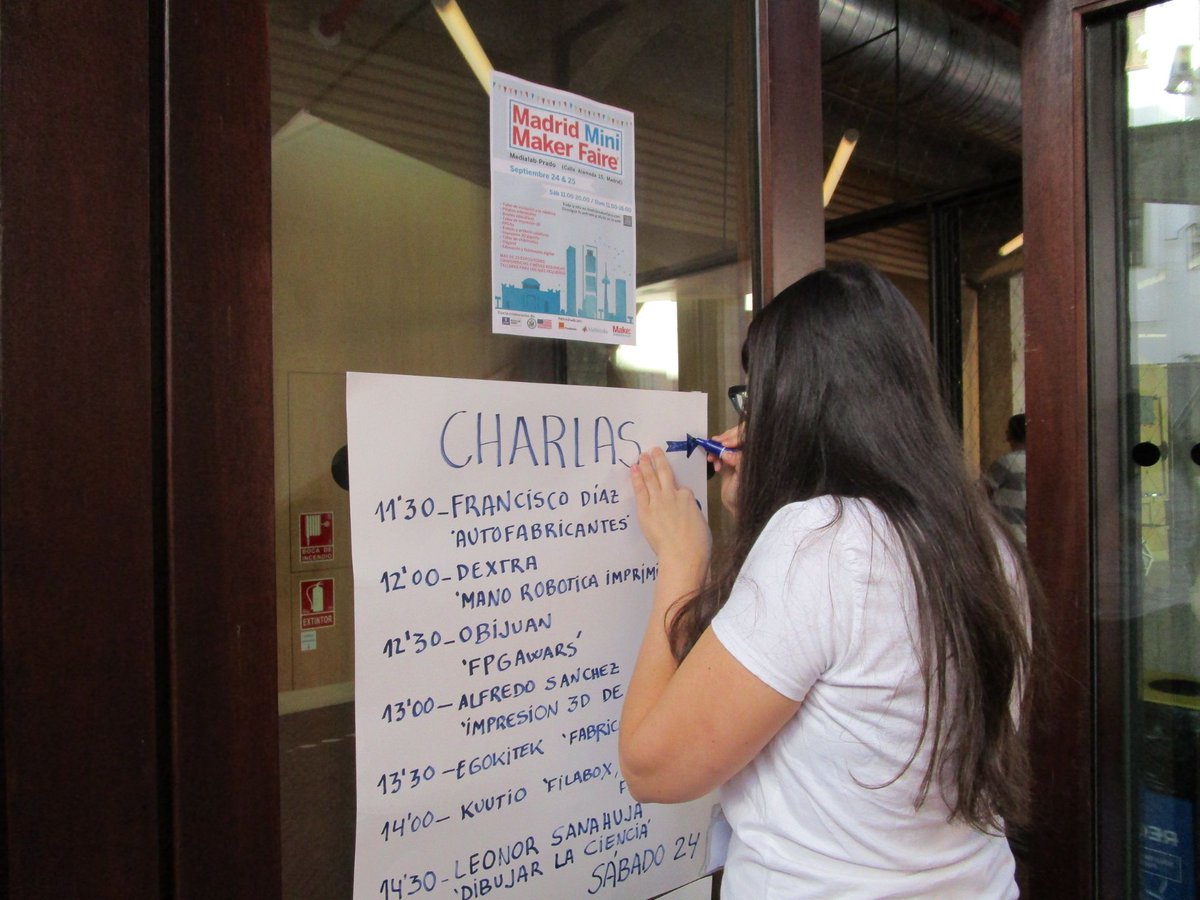 Madrid Mini
Maker Faire
Medialab-Prado (Calle Alameda 15, Madrid)
Septiembre 24 & 25
CHARLAS
11'30-FRANCISCO DÍAZ
'AUTOFABRICANTES'
12'00-DEXTRA
'MANO ROBOTICA IMPRIMI
12'30-OBIJUAN
'FPGAWARS'
13'00-ALFREDO SANCHEZ
'IMPRESION 3D DE
13'30-EGOKITEK 'FABRIC
14'00-KUUTIO 'FILABOX,
F
14'30-LEONOR SANAHUJA
'DIBUJAR LA CIENCIA'
SÁBADO 24
BOCA DE
INCENDIO
EXTINTOR
Make: